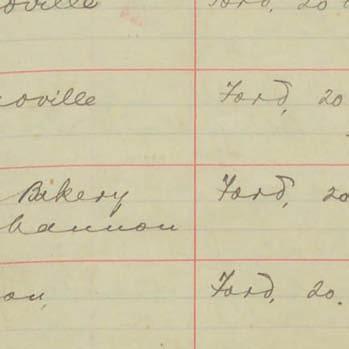 oville Ford, 20
oville Ford, 20
Bakery Ford, 20
hannon
on, Ford, 20.